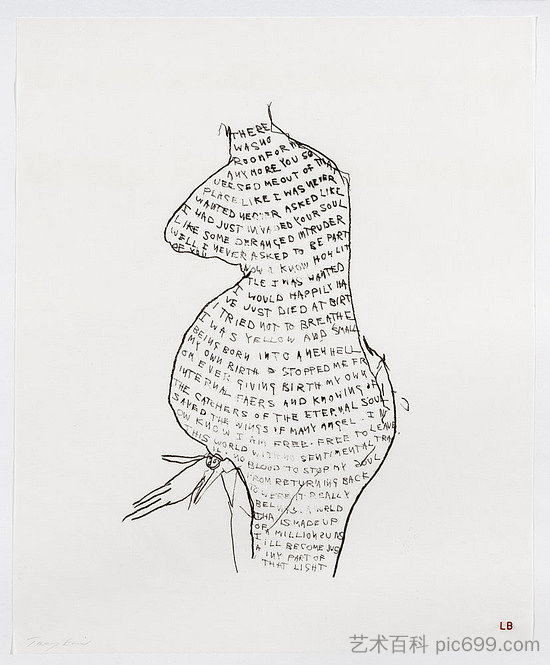 THERE
WAS NO
ROOM FOR ME
ANY MORE YOU SO
VERSED ME OUT OF THAT
PLACE LIKE I WAS NEVER
WANTED NEVER ASKED LIKE
I HAD JUST INVADED YOUR SOUL
LIKE SOME DERANGED INTRUDER
WELL I NEVER ASKED TO BE PART
OF YOU NOW I KNOW HOW LIT
TLE I WAS WANTED
I WOULD HAPPILY HA
VE JUST DIED AT BIRT
I TRIED NOT TO BREATHE
I WAS YELLOW AND SMALL
BEING BORN INTO A NEW HELL
MY OWN BIRTH STOPPED ME FR
OM EVER GIVING BIRTH MY OWN
INTERNAL FAERS AND KNOWING OF
THE CATCHERS OF THE ETERNAL SOUL
SAVED THE WINGS IF MANY ANGEL. I N
OW KNOW I AM FREE. FREE TO LEAVE
THIS WORLD WITH NO SENTIMENTAL TRA
IL. NO BLOOD TO STOP MY SOUL
FROM RETURNING BACK
TO WERE IT REALLY
BELONGS. A WORLD
THA IS MADE UP
OF A MILLION SUNS
I WILL BECOME JUS
A TINY PART OF
THAT LIGHT
LB
艺术百科 pic699.com